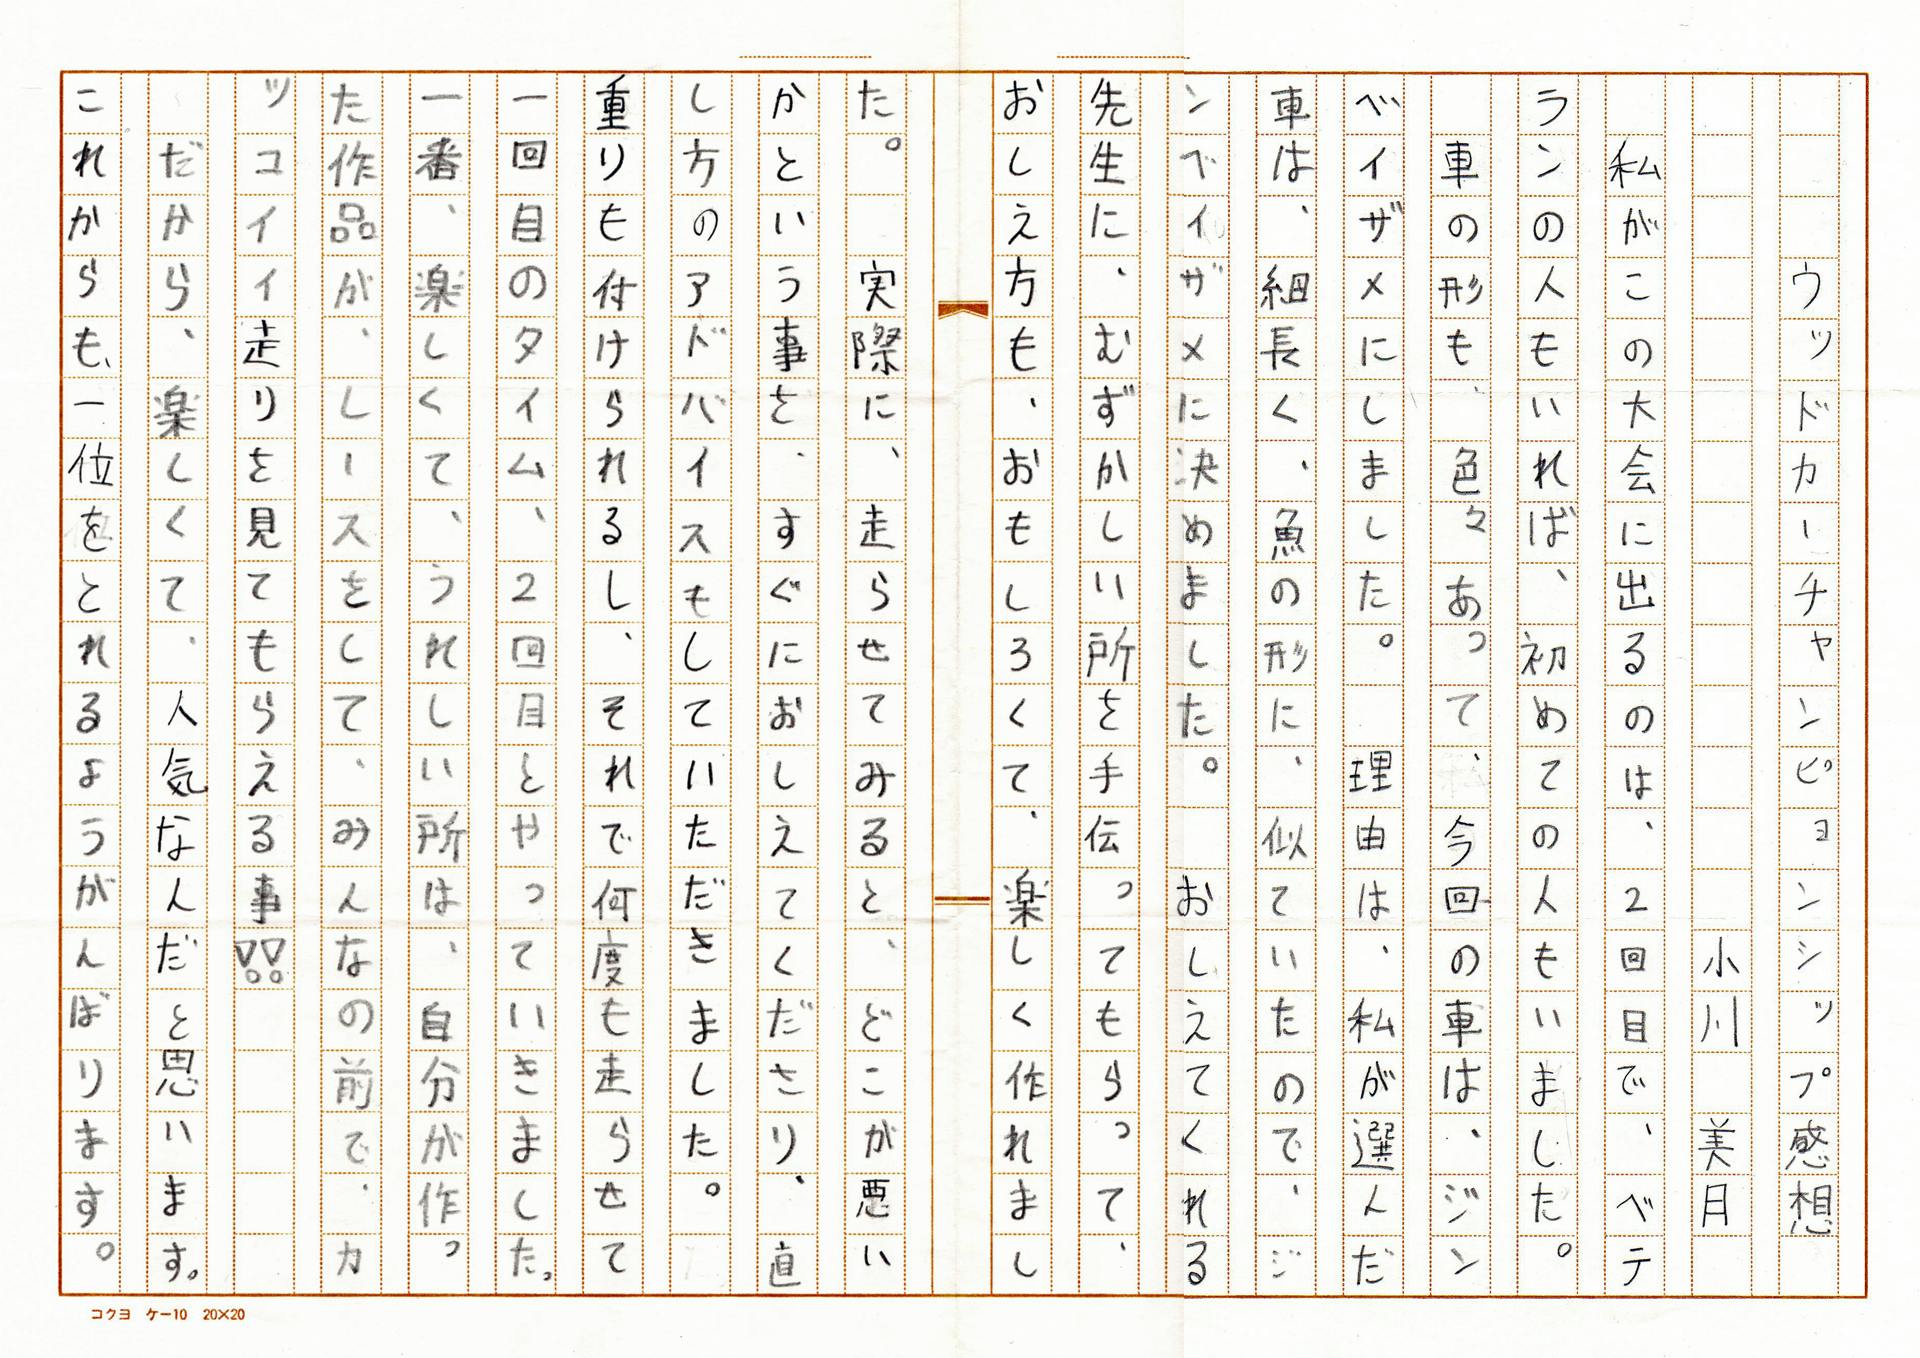 ウッドカーチャンピョンシップ感想
小川 美月
私がこの大会に出るのは、2回目で、ベテ
ランの人もいれば、初めての人もいました。
車の形も、色々あって、今回の車は、ジン
ベイザメにしました。 理由は、私が選んだ
車は、細長く、魚の形に、似ていたので、ジ
ンベイザメに決めました。 おしえてくれる
先生に、むずかしい所を手伝ってもらって、
おしえ方も、おもしろくて、楽しく作れまし
た。 実際に、走らせてみると、どこが悪い
かという事を、すぐにおしえてくださり、直
し方のアドバイスもしていただきました。
重りも付けられるし、それで何度も走らせて
一回目のタイム、2回目とやっていきました。
一番、楽しくて、うれしい所は、自分が作っ
た作品が、レースをして、みんなの前で、カ
ッコイイ走りを見てもらえる事!!
だから、楽しくて、人気なんだと思います。
これからも、一位をとれるようがんばります。
コクヨ ケー10 20×20